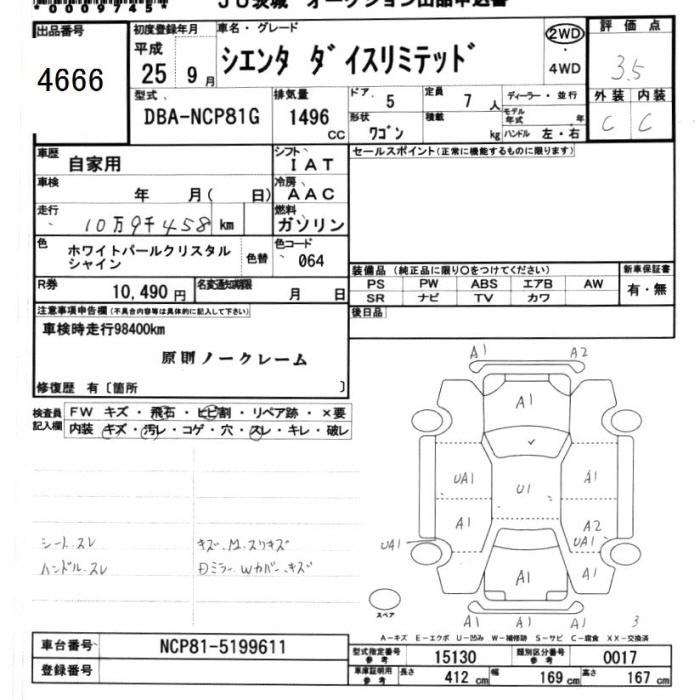 *0009745*
JU茨城 オークション出品申込書
出品番号
4666
初度登録年月
平成
25 9月
車名・グレード
シエンタ ダイスリミテッド
2WD
・
4WD
評価点
3.5
外装 内装
C C
型式
DBA-NCP81G
排気量
1496
cc
ドア 5
定員 7人
形状 ワゴン
積載 kg
ディーラー・並行
モデル年式 年
ハンドル 左・右
車歴
自家用
シフト
IAT
車検
年 月( 日)
冷房
AAC
走行
10万9千458 km
燃料
ガソリン
色
ホワイトパールクリスタル
シャイン
色替
色コード
064
R券
10,490円
名変通知期限
月 日
セールスポイント(正常に機能するものに限ります)
装備品(純正品に限り○をつけてください)
PS PW ABS エアB AW
SR ナビ TV カワ
新車保証書
有・無
後日品
注意事項申告欄(不具合内容等は具体的に記入して下さい)
車検時走行98400km
原則ノークレーム
修復歴 有〔箇所 〕
検査員
記入欄
FW キズ・飛石・ヒビ割・リペア跡・×要
内装 キズ・汚レ・コゲ・穴・スレ・キレ・破レ
シート.スレ
ハンドル.スレ
キズ.M.スリキズ
Dミラー.Wカバー.キズ
A1 A2
A1
UA1 U1 A1
A1 A2
UA1 UA1
A1 A1
A1 A1
スペア
3
A-キズ E-エクボ U-凹み W-補修跡 S-サビ C-腐食 XX-交換済
車台番号
NCP81-5199611
登録番号
型式指定番号
参考
15130
類別区分番号
参考
0017
車庫証明用
参考
長さ 412 cm
幅 169 cm
高さ 167 cm